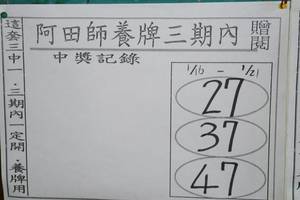 阿田師養牌三期內
贈閱
這套三中一．三期內一定開．養牌用
中獎記錄
1/16 - 1/21
27
37
47